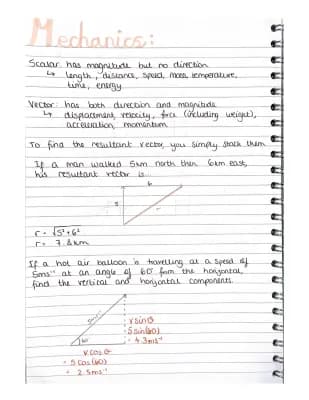 Mechanics:
Scalar: has magnitude but no direction
↳ length, distance, speed, mass, temperature,
time, energy
Vector: has both direction and magnitude
↳ displacement, velocity, force (including weight),
acceleration, momentum
To find the resultant vector, you simply stack them
If a man walked 5km north then 6km east,
his resultant vector is
6
5
r = √5²+6²
r = 7.8km
If a hot air balloon is travelling at a speed of
5ms⁻¹ at an angle of 60° from the horizontal,
find the vertical and horizontal components.
5ms⁻¹
60
v sinθ
5sin(60)
= 4.3ms⁻¹
v cosθ
= 5cos(60)
= 2.5ms⁻¹